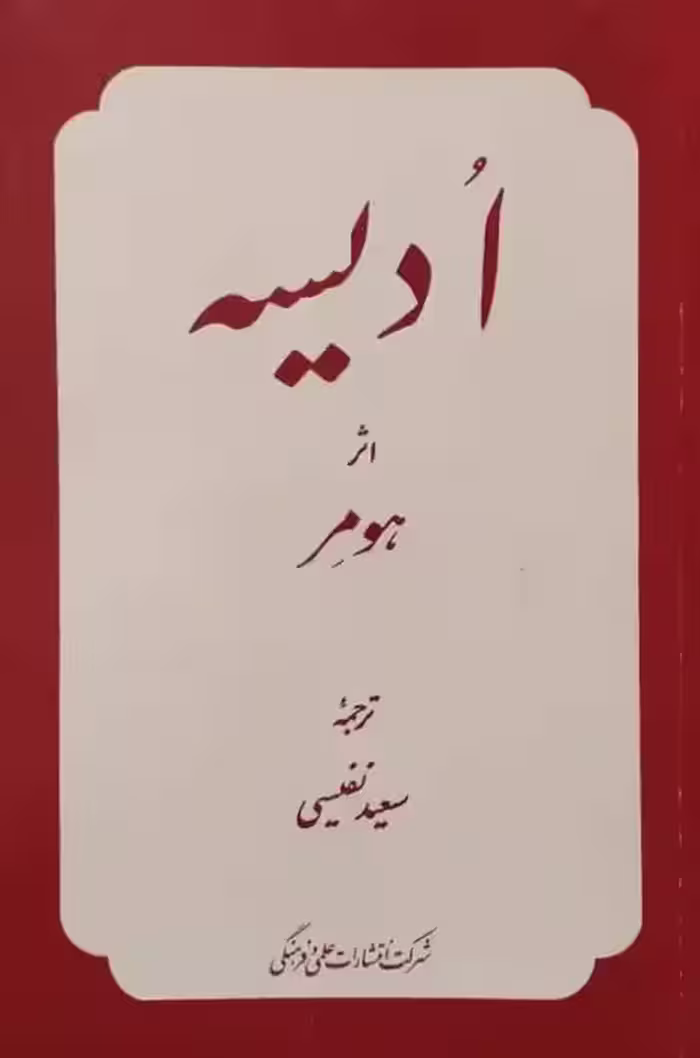 اُدیسه
اثر
هومِر
ترجمهٔ
سعید نفیسی
شرکت انتشارات علمی و فرهنگی